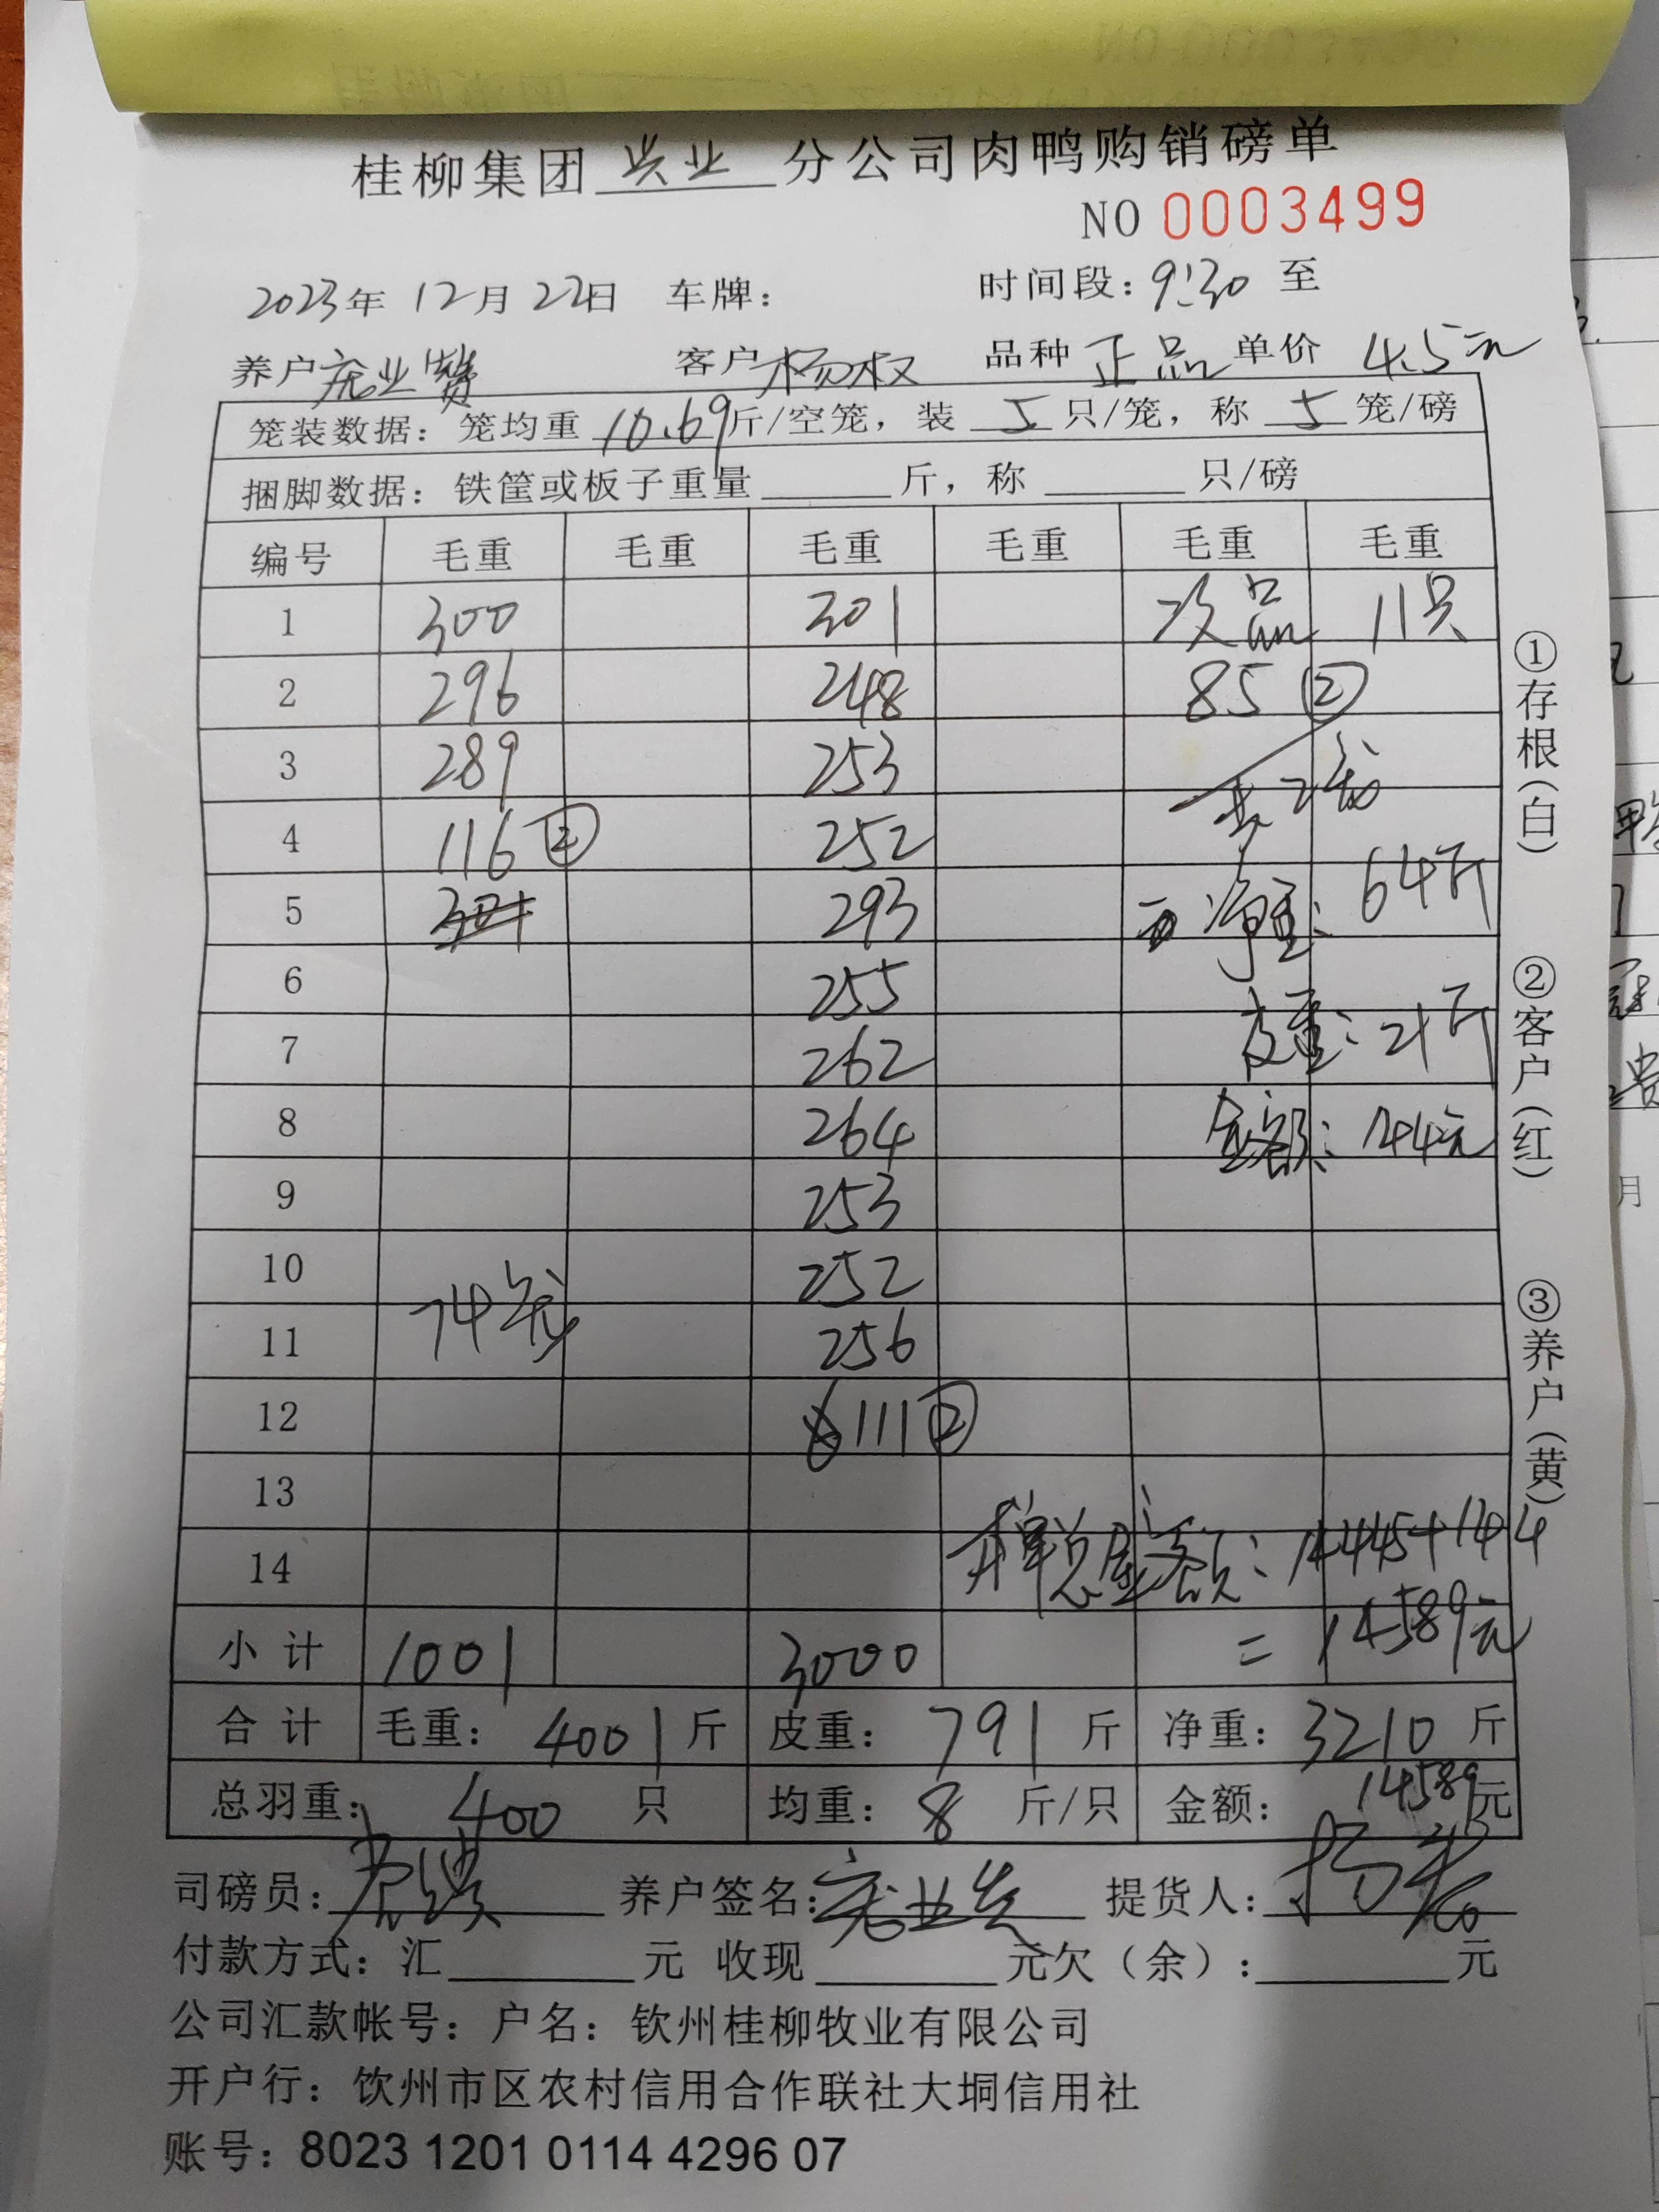 桂柳集团 兴业 分公司肉鸭购销磅单
NO 0003499
2023年 12月 22日 车牌: 时间段: 9:30 至
养户 庞业赞 客户 杨权 品种 正品 单价 4.5元
笼装数据: 笼均重 10.69 斤/空笼, 装 5 只/笼, 称 5 笼/磅
捆脚数据: 铁筐或板子重量 斤, 称 只/磅
编号 毛重 毛重 毛重 毛重 毛重 毛重
1 300 301 次品 11只
2 296 248 85 ②
3 289 253 共2笼
4 116 ② 252
5 293 净重: 64斤
6 255
7 262 皮重: 21斤
8 264 金额: 144元
9 253
10 252
11 74笼 256
12 111 ②
13
14 本单总金额: 14445+144
小计 1001 3000 = 14589元
合计 毛重: 4001 斤 皮重: 791 斤 净重: 3210 斤
总羽重: 400 只 均重: 8 斤/只 金额: 14589元
司磅员: 养户签名: 提货人:
付款方式: 汇 元 收现 元欠(余): 元
公司汇款帐号: 户名: 钦州桂柳牧业有限公司
开户行: 饮州市区农村信用合作联社大垌信用社
账号: 8023 1201 0114 4296 07
①存根(白) ②客户(红) ③养户(黄)